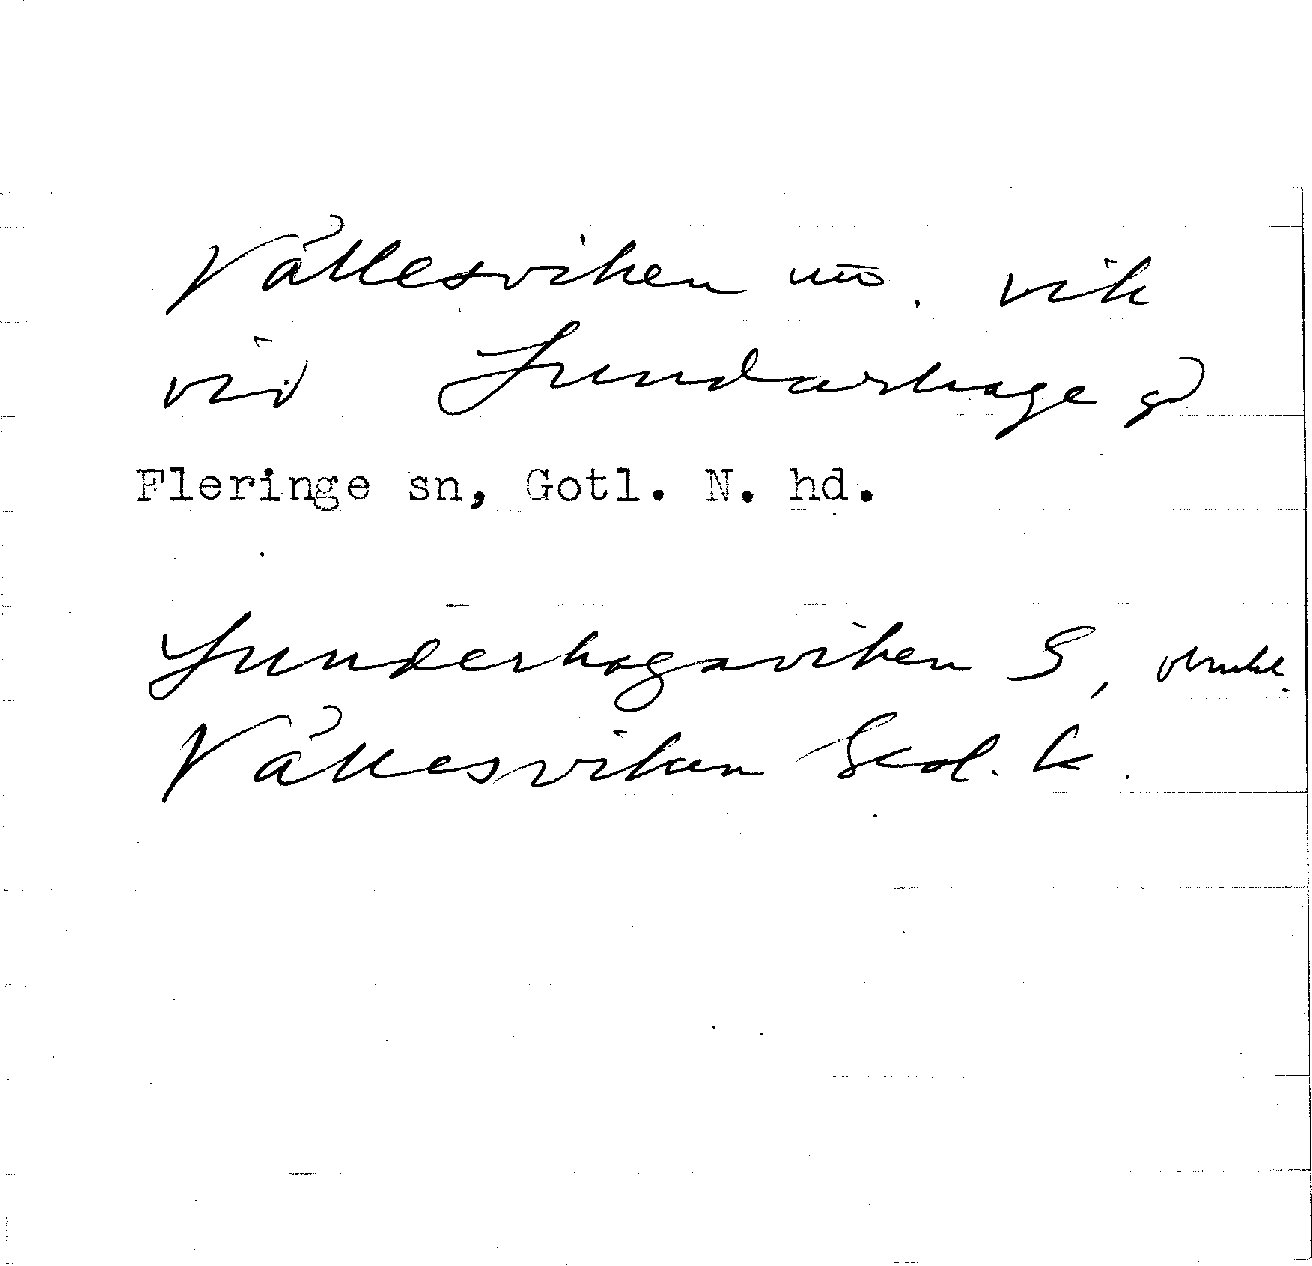 Vällesviken nö. vik
vid Sundarhage gd
Fleringe sn, Gotl. N. hd.
Sunderhagaviken S, obrukl.
Vällesviken Geol. k.